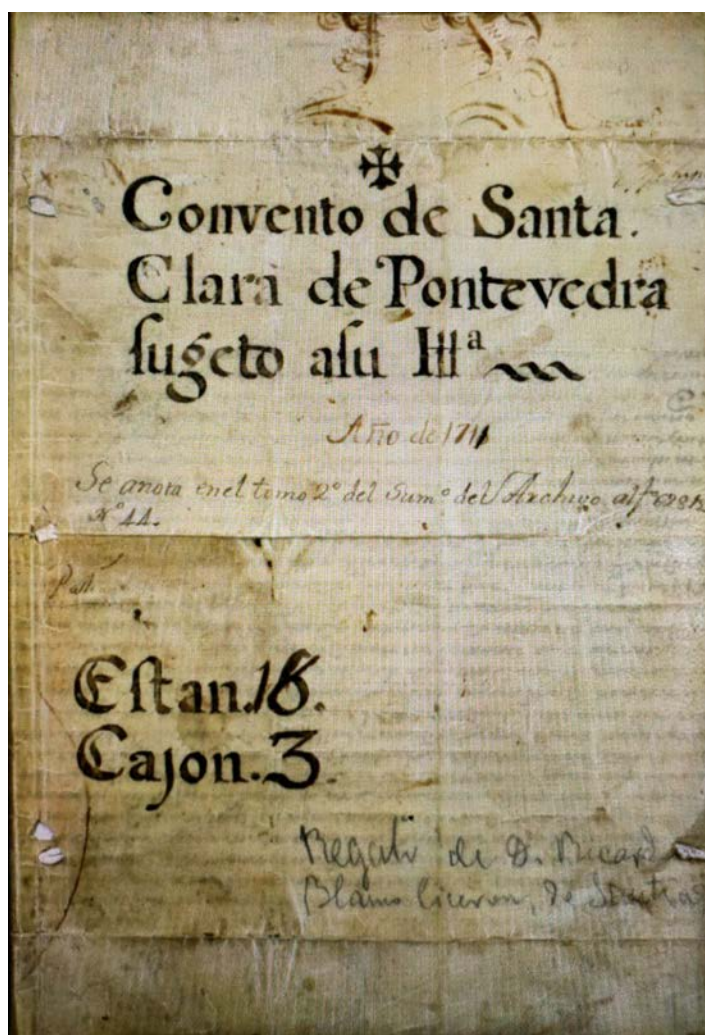 Convento de Santa.
Clara de Pontevedra
sugeto asu Illª
Año de 1711
Se anota enel tomo 2º del Sumº del Archivo alfº
Nº 44.
Estan. 16.
Cajon. 3.
Regalo de D. Ricardo
Blanco Ciceron, de